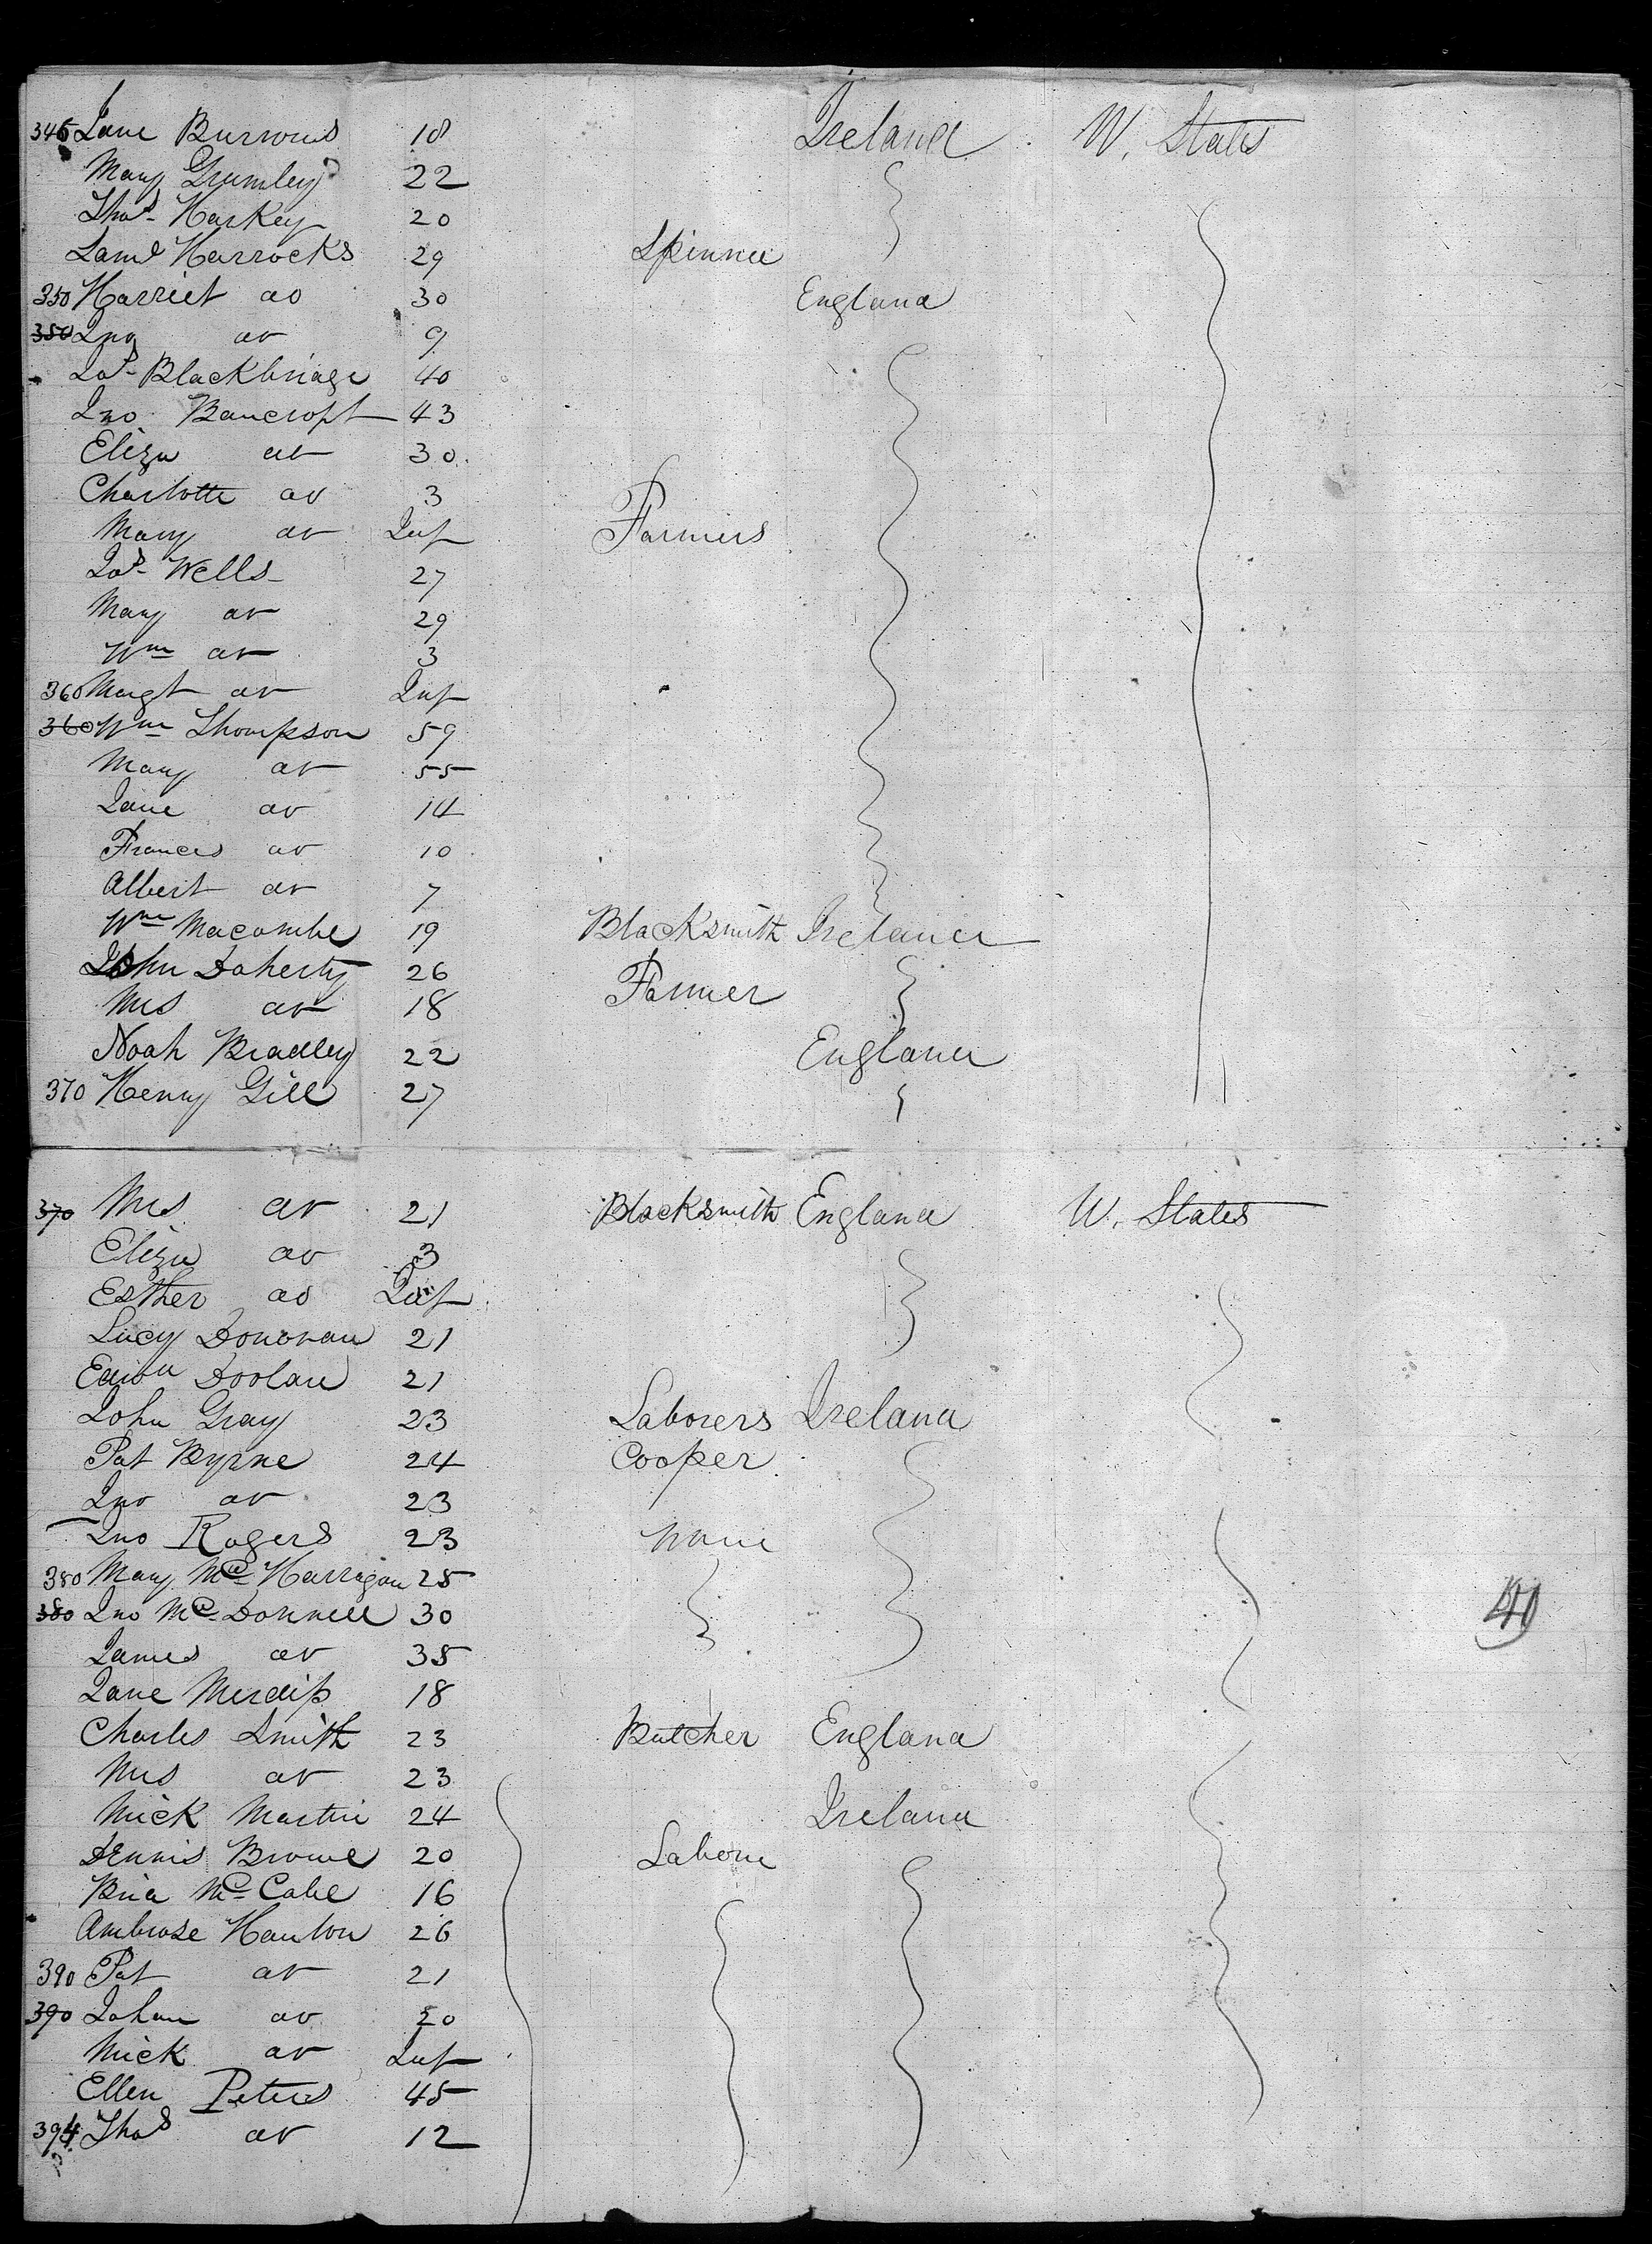 346 Jane Burrows 18 Ireland W. States
Mary Grumley 22
Thos Harkey 20
Saml Horrocks 29 Spinner
350 Harriet do 30 England
350 Jno do 9
Jas Blackbridge 40
Jno Bancroft 43
Eliza do 30
Charlotte do 3
Mary do Inf Farmers
Jas Wells 27
Mary do 29
Wm do 3
360 Margt do Inf
360 Wm Thompson 59
Mary do 55
Jane do 14
Frances do 10
Albert do 7
Wm Macombe 19 Blacksmith Ireland
John Doherty 26 Farmer
Mrs do 18
Noah Bradley 22 England
370 Henry Gill 27
370 Mrs do 21 Blacksmith England W. States
Eliza do 3
Esther do Inf
Lucy Donovan 21
Edwd Doolan 21
John Gray 23 Laborers Ireland
Pat Byrne 24 Cooper
Jno do 23
Jno Rogers 23 None
380 Mary Mc Harrigan 25
380 Jno Mc Donnell 30
James do 35
Jane 18
Charles Smith 23 Butcher England
Mrs do 23
Mick Martin 24 Ireland
Dennis Browne 20 Labore
Mc Cabe 16
Ambrose Hanlon 26
390 Pat do 21
390 Johan do 20
Mick do Inf
Ellen Peters 45
394 Thos do 12